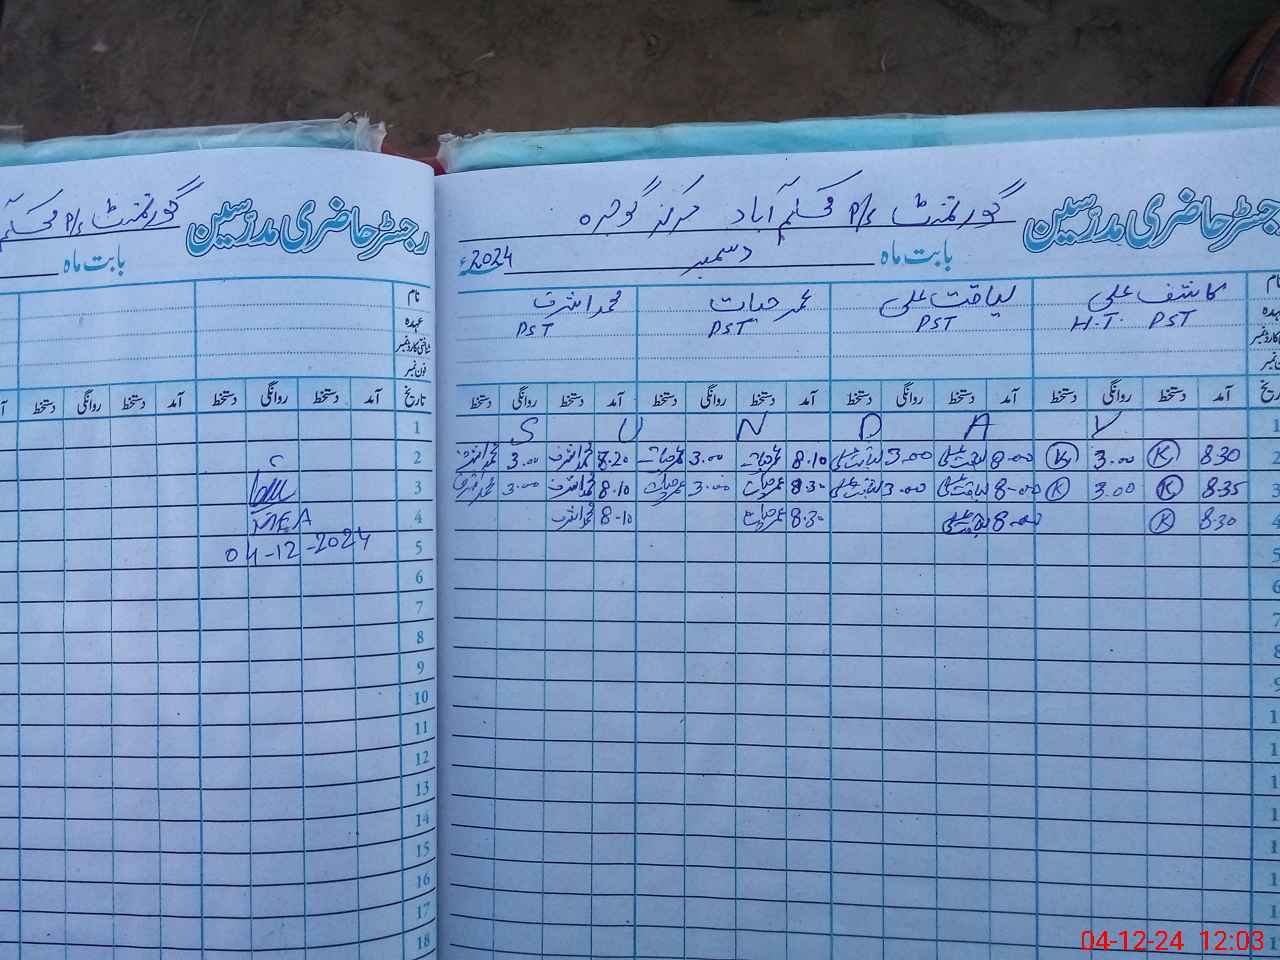 رجسٹر حاضری مدرسین گورنمنٹ P/S محکم آباد مرکز گوجرہ
بابت ماہ دسمبر 2024ء
نام کاشف علی لیاقت علی عمر حیات محمد اشرف
عہدہ H.T. PST PST PST PST
فون نمبر
تاریخ آمد دستخط روانگی دستخط آمد دستخط روانگی دستخط آمد دستخط روانگی دستخط آمد دستخط روانگی دستخط
1 S U N D A Y
2 8.30 K 3.00 K 8.00 لیاقت علی 3.00 لیاقت علی 8.10 عمر حیات 3.00 عمر حیات 8.20 محمد اشرف 3.00 محمد اشرف
3 8.35 K 3.00 K 8.00 لیاقت علی 3.00 لیاقت علی 8.30 عمر حیات 3.00 عمر حیات 8.10 محمد اشرف 3.00 محمد اشرف
4 8.30 K 8.00 لیاقت علی 8.30 عمر حیات 8.10 محمد اشرف
رجسٹر حاضری مدرسین گورنمنٹ P/S
بابت ماہ
نام
عہدہ
شناختی کارڈ نمبر
فون نمبر
تاریخ آمد دستخط روانگی دستخط آمد دستخط روانگی دستخط
1
2
3
4 MEA
5 04-12-2024
6
7
8
9
10
11
12
13
14
15
16
17
18
04-12-24 12:03